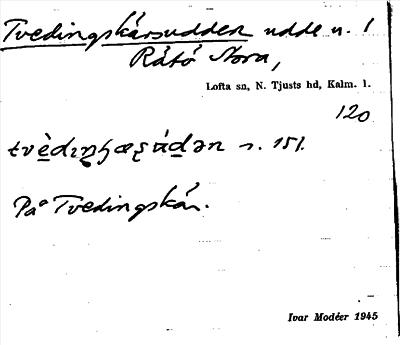 Tvedingskärsudden udde n. 1
Rätö Norra,
Lofta sn, N. Tjusts hd, Kalm. l.
120
n. 151.
På Tvedingskär.
Ivar Modéer 1945